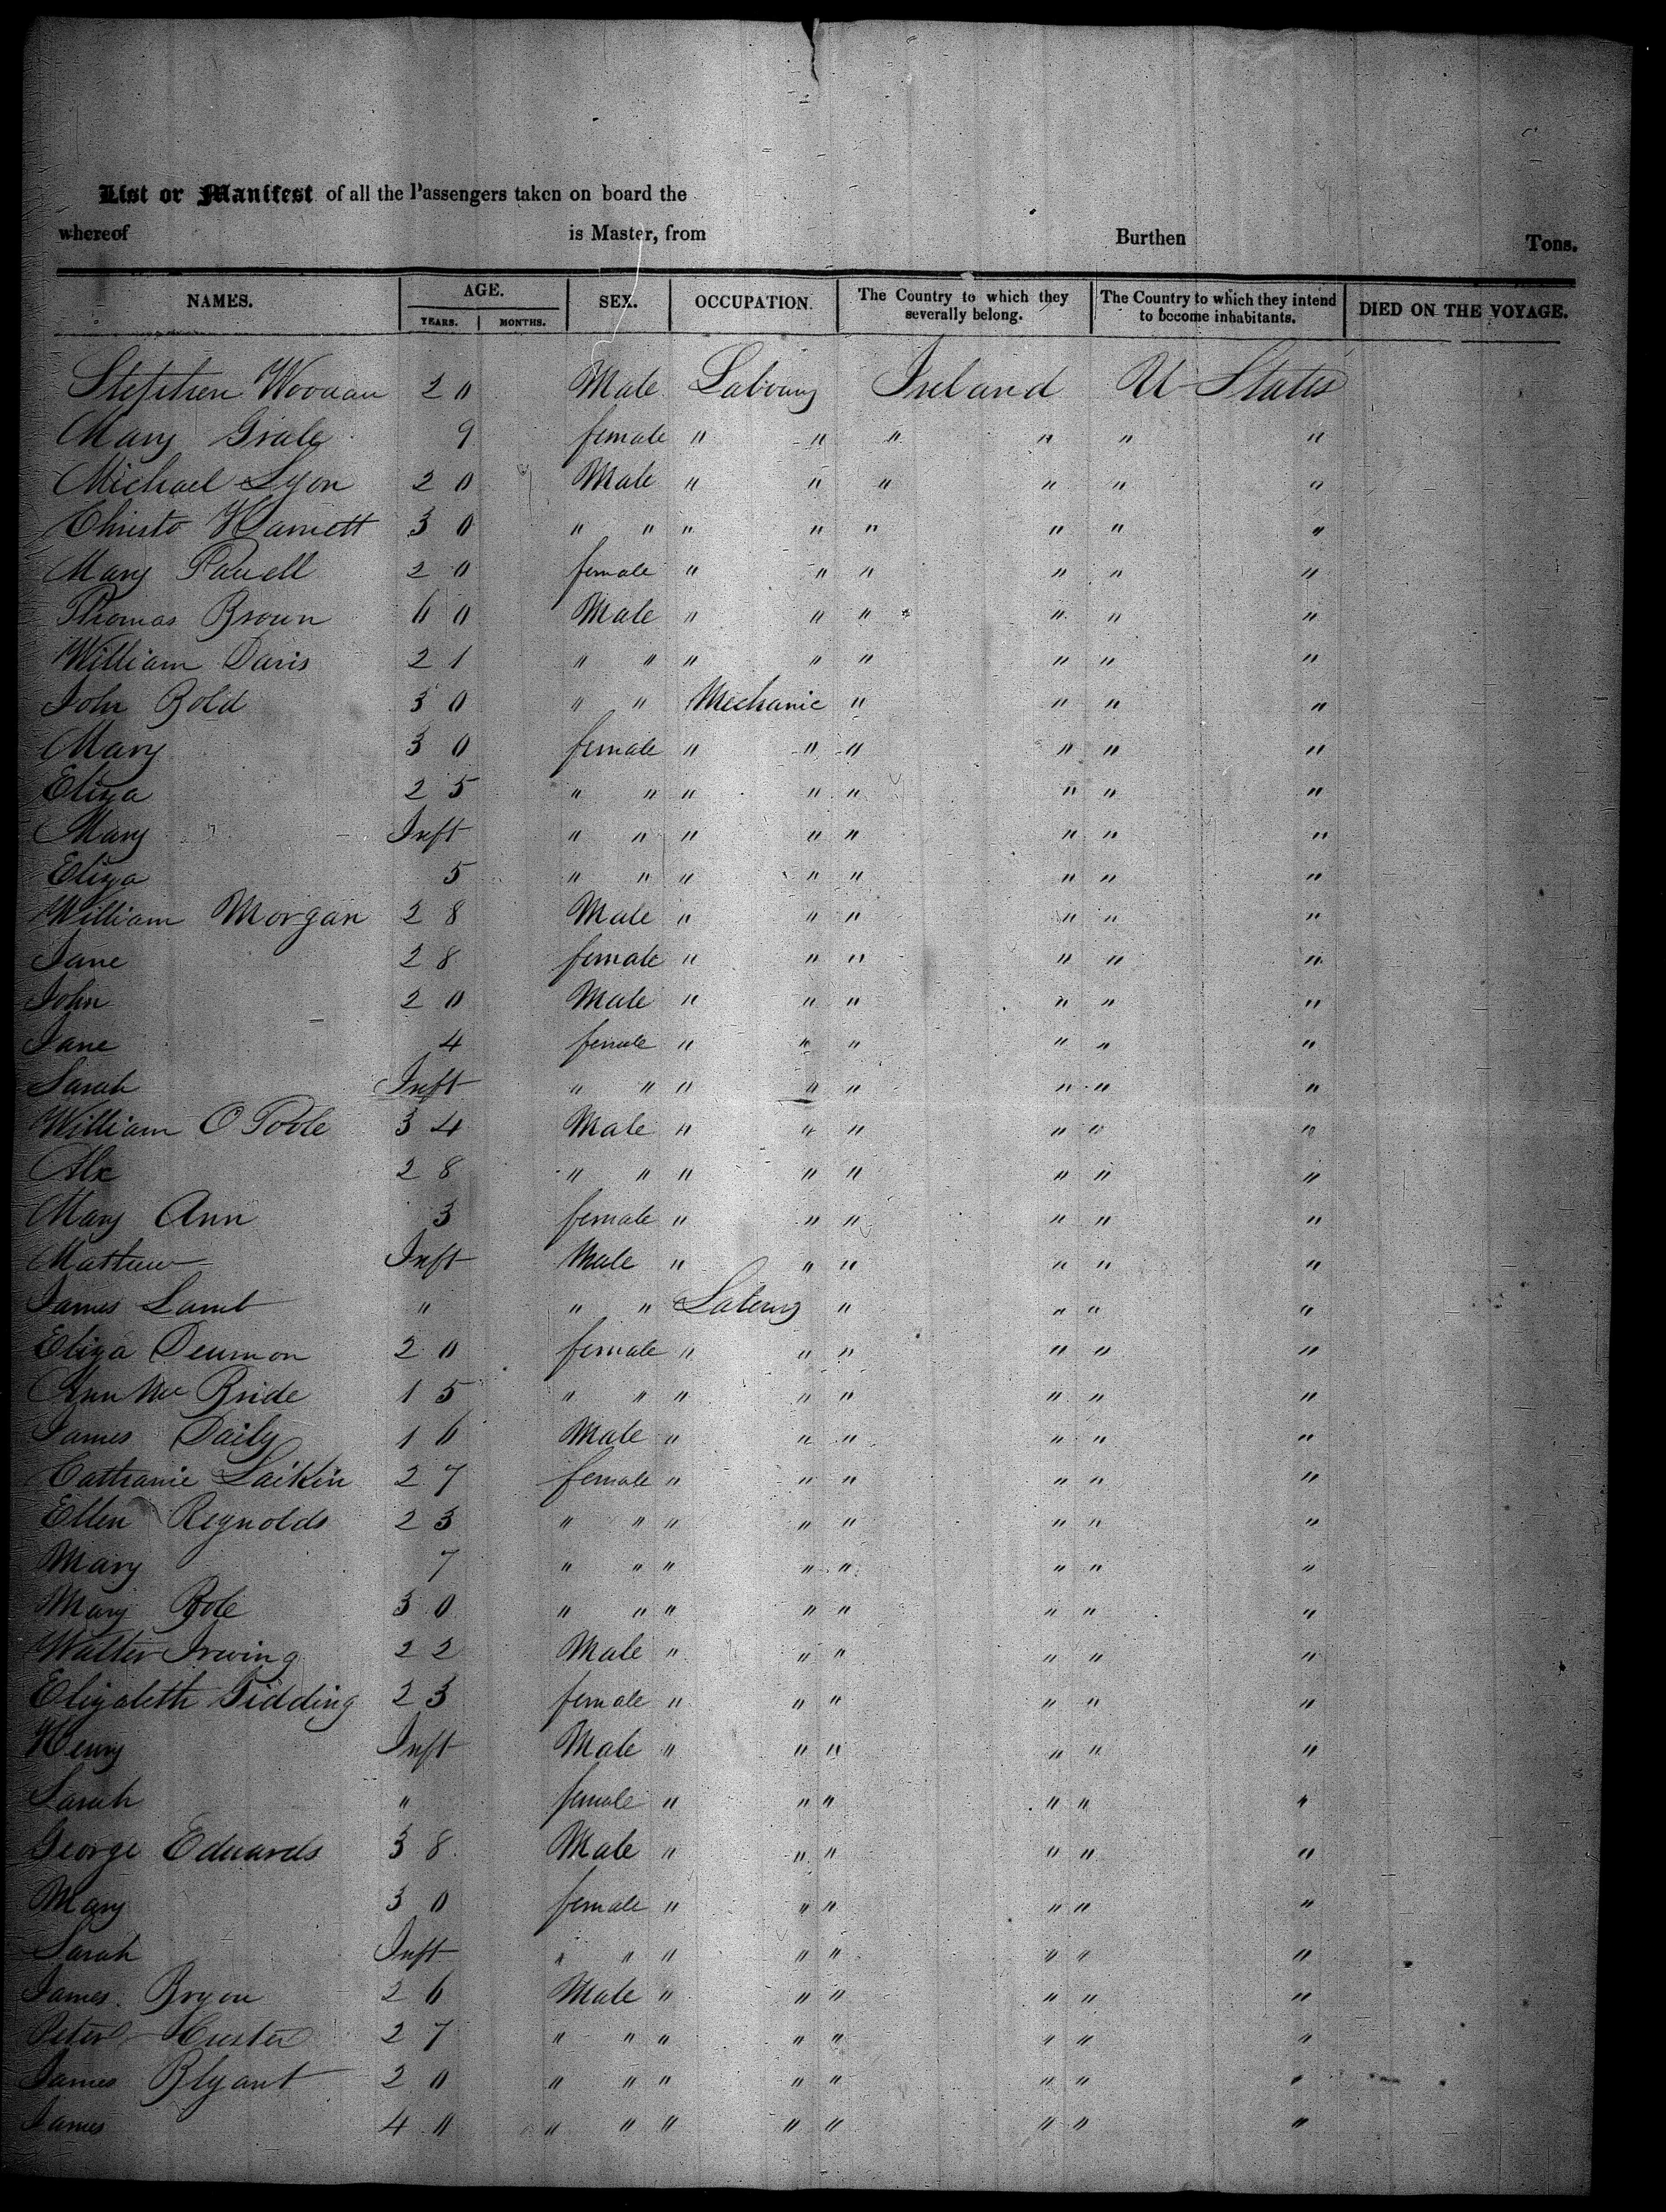 List or Manifest of all the Passengers taken on board the
whereof is Master, from Burthen Tons.
NAMES. AGE. SEX. OCCUPATION. The Country to which they severally belong. The Country to which they intend to become inhabitants. DIED ON THE VOYAGE.
YEARS. MONTHS.
Stephen 20 Male Ireland U States
Mary 9 female " " " " " "
Michael Lyon 20 Male " " " " " "
Christo 30 " " " " " " " "
Mary 20 female " " " " " "
Thomas Brown 60 Male " " " " " "
William Davis 21 " " " " " " " "
John Bold 30 " " Mechanic " " " "
Mary 30 female " " " " " "
Eliza 25 " " " " " " " "
Mary Inft " " " " " " " "
Eliza 5 " " " " " " " "
William Morgan 28 Male " " " " " "
Jane 28 female " " " " " "
John 20 Male " " " " " "
Jane 4 female " " " " " "
Sarah Inft " " " " " " " "
William O Poole 34 Male " " " " " "
Alx 28 " " " " " " " "
Mary Ann 3 female " " " " " "
Mathew Inft Male " " " " " "
James Lamb " " " " " " "
Eliza 20 female " " " " " "
Ann Mc Bride 15 " " " " " " " "
James Daily 16 Male " " " " " "
Catharine 27 female " " " " " "
Ellen Reynolds 23 " " " " " " " "
Mary 7 " " " " " " " "
Mary 30 " " " " " " " "
Walter Irwing 22 Male " " " " " "
Elizabeth Gidding 23 female " " " " " "
Henry Inft Male " " " " " "
Sarah " female " " " " " "
George Edwards 38 Male " " " " " "
Mary 30 female " " " " " "
Sarah Inft " " " " " " " "
James Bryon 26 Male " " " " " "
Peter 27 " " " " " " " "
James Blyant 20 " " " " " " " "
James 40 " " " " " " " "